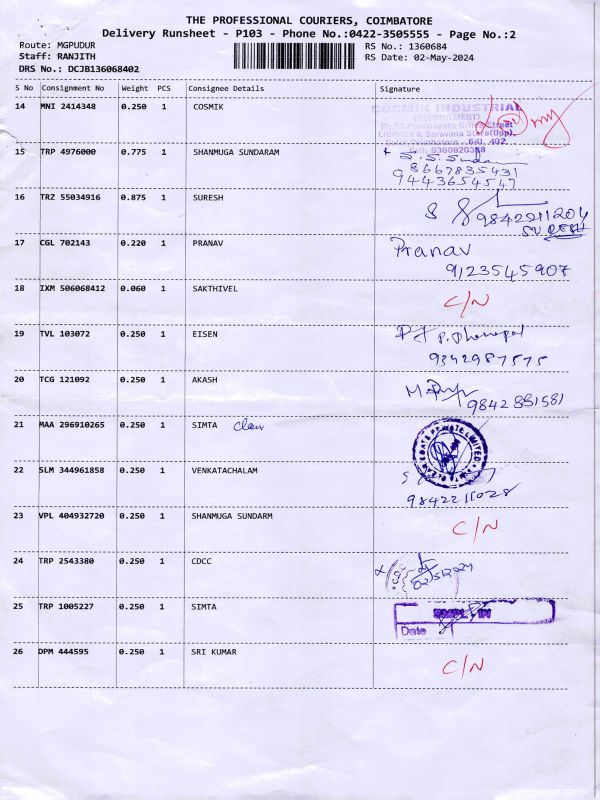 THE PROFESSIONAL COURIERS, COIMBATORE
Delivery Runsheet - P103 - Phone No.:0422-3505555 - Page No.:2
Route: MGPUDUR RS No.: 1360684
Staff: RANJITH RS Date: 02-May-2024
DRS No.: DCJB136068402
S No Consignment No Weight PCS Consignee Details Signature
14 MNI 2414348 0.250 1 COSMIK
COSMIK INDUSTRIAL
(RECRUITMENT)
LIBRARY & Saravana Store(Opp),
15 TRP 4976000 0.775 1 SHANMUGA SUNDARAM
98667835431
9443654547
16 TRZ 55034916 0.875 1 SURESH
9842211204
SURESH
17 CGL 702143 0.220 1 PRANAV Pranav
9123545907
18 IXM 506068412 0.060 1 SAKTHIVEL C/N
19 TVL 103072 0.250 1 EISEN
9342987575
20 TCG 121092 0.250 1 AKASH
9842851581
21 MAA 296910265 0.250 1 SIMTA
22 SLM 344961858 0.250 1 VENKATACHALAM
9842211028
23 VPL 404932720 0.250 1 SHANMUGA SUNDARM C/N
24 TRP 2543380 0.250 1 CDCC
02/5/2024
25 TRP 1005227 0.250 1 SIMTA
Date
26 DPM 444595 0.250 1 SRI KUMAR C/N